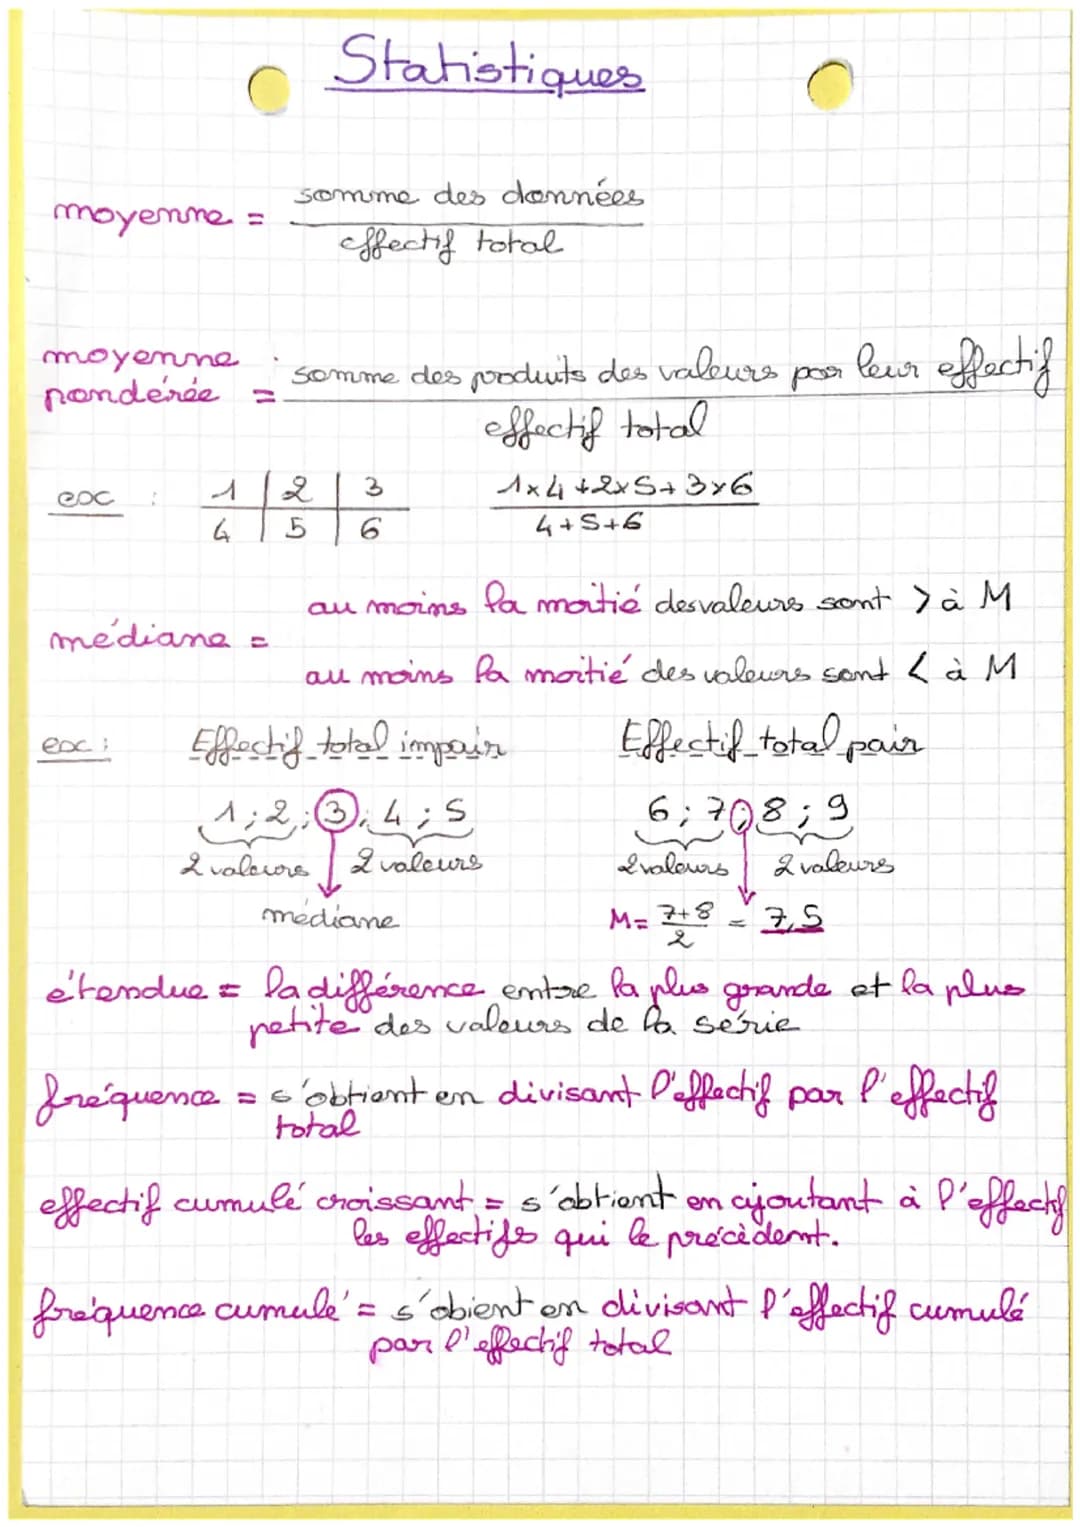 Statistiques
moyenne = somme des données
effectif total
moyenne
pondérée = somme des produits des valeurs par leur effectif
effectif total
ex : 1 | 2 | 3
4 | 5 | 6
1×4+2×5+3×6
4+5+6
au moins la moitié des valeurs sont > à M
médiane =
au moins la moitié des valeurs sont < à M
ex : Effectif total impair
1 ; 2 ; 3 ; 4 ; 5
2 valeurs 2 valeurs
médiane
Effectif total pair
6 ; 7 ; 8 ; 9
2 valeurs 2 valeurs
M = 7+8 = 7,5
2
étendue = la différence entre la plus grande et la plus
petite des valeurs de la série
fréquence = s'obtient en divisant l'effectif par l'effectif
total
effectif cumulé croissant = s'obtient en ajoutant à l'effectif
les effectifs qui le précèdent.
fréquence cumulé = s'obient en divisant l'effectif cumulé
par l'effectif total